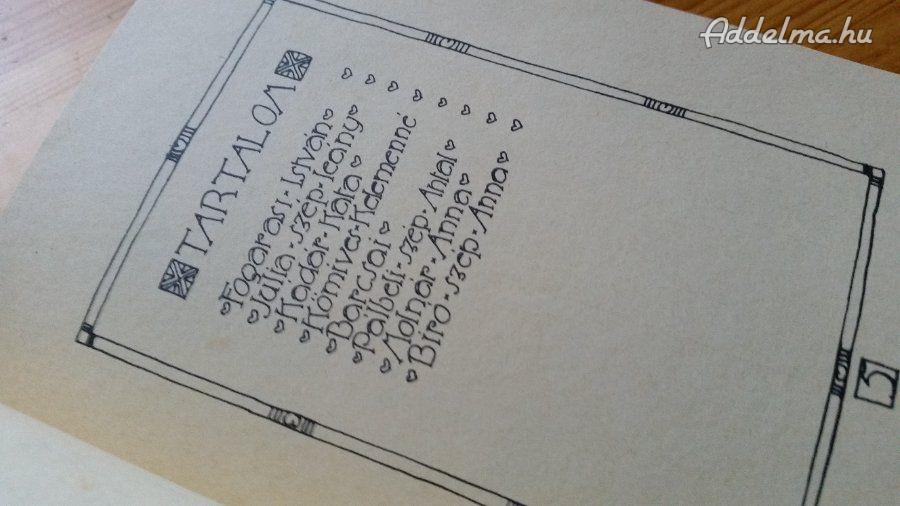 TARTALOM
Fogarasi-István
Julia-szép-leány
Kádár-Kata
Kőmives-Kelemenné
Barcsai
Pálbeli-szép-Antal
Molnár-Anna
Biró-szép-Anna
5
Addelma.hu